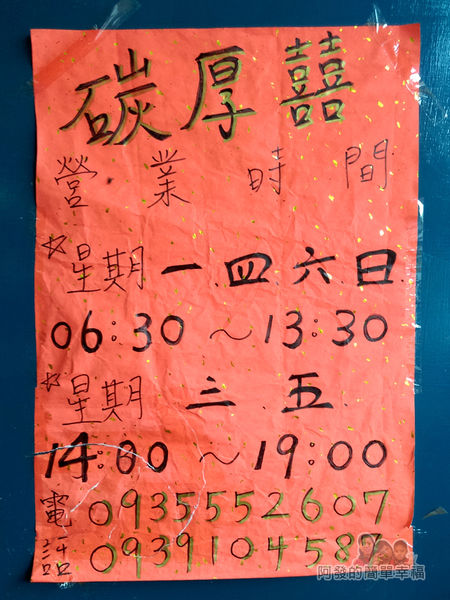 碳厚囍
營業時間
☆星期一.四.六.日
06:30～13:30
☆星期三.五.
14:00～19:00
電話 0935552607
0939104587
阿發的簡單幸福